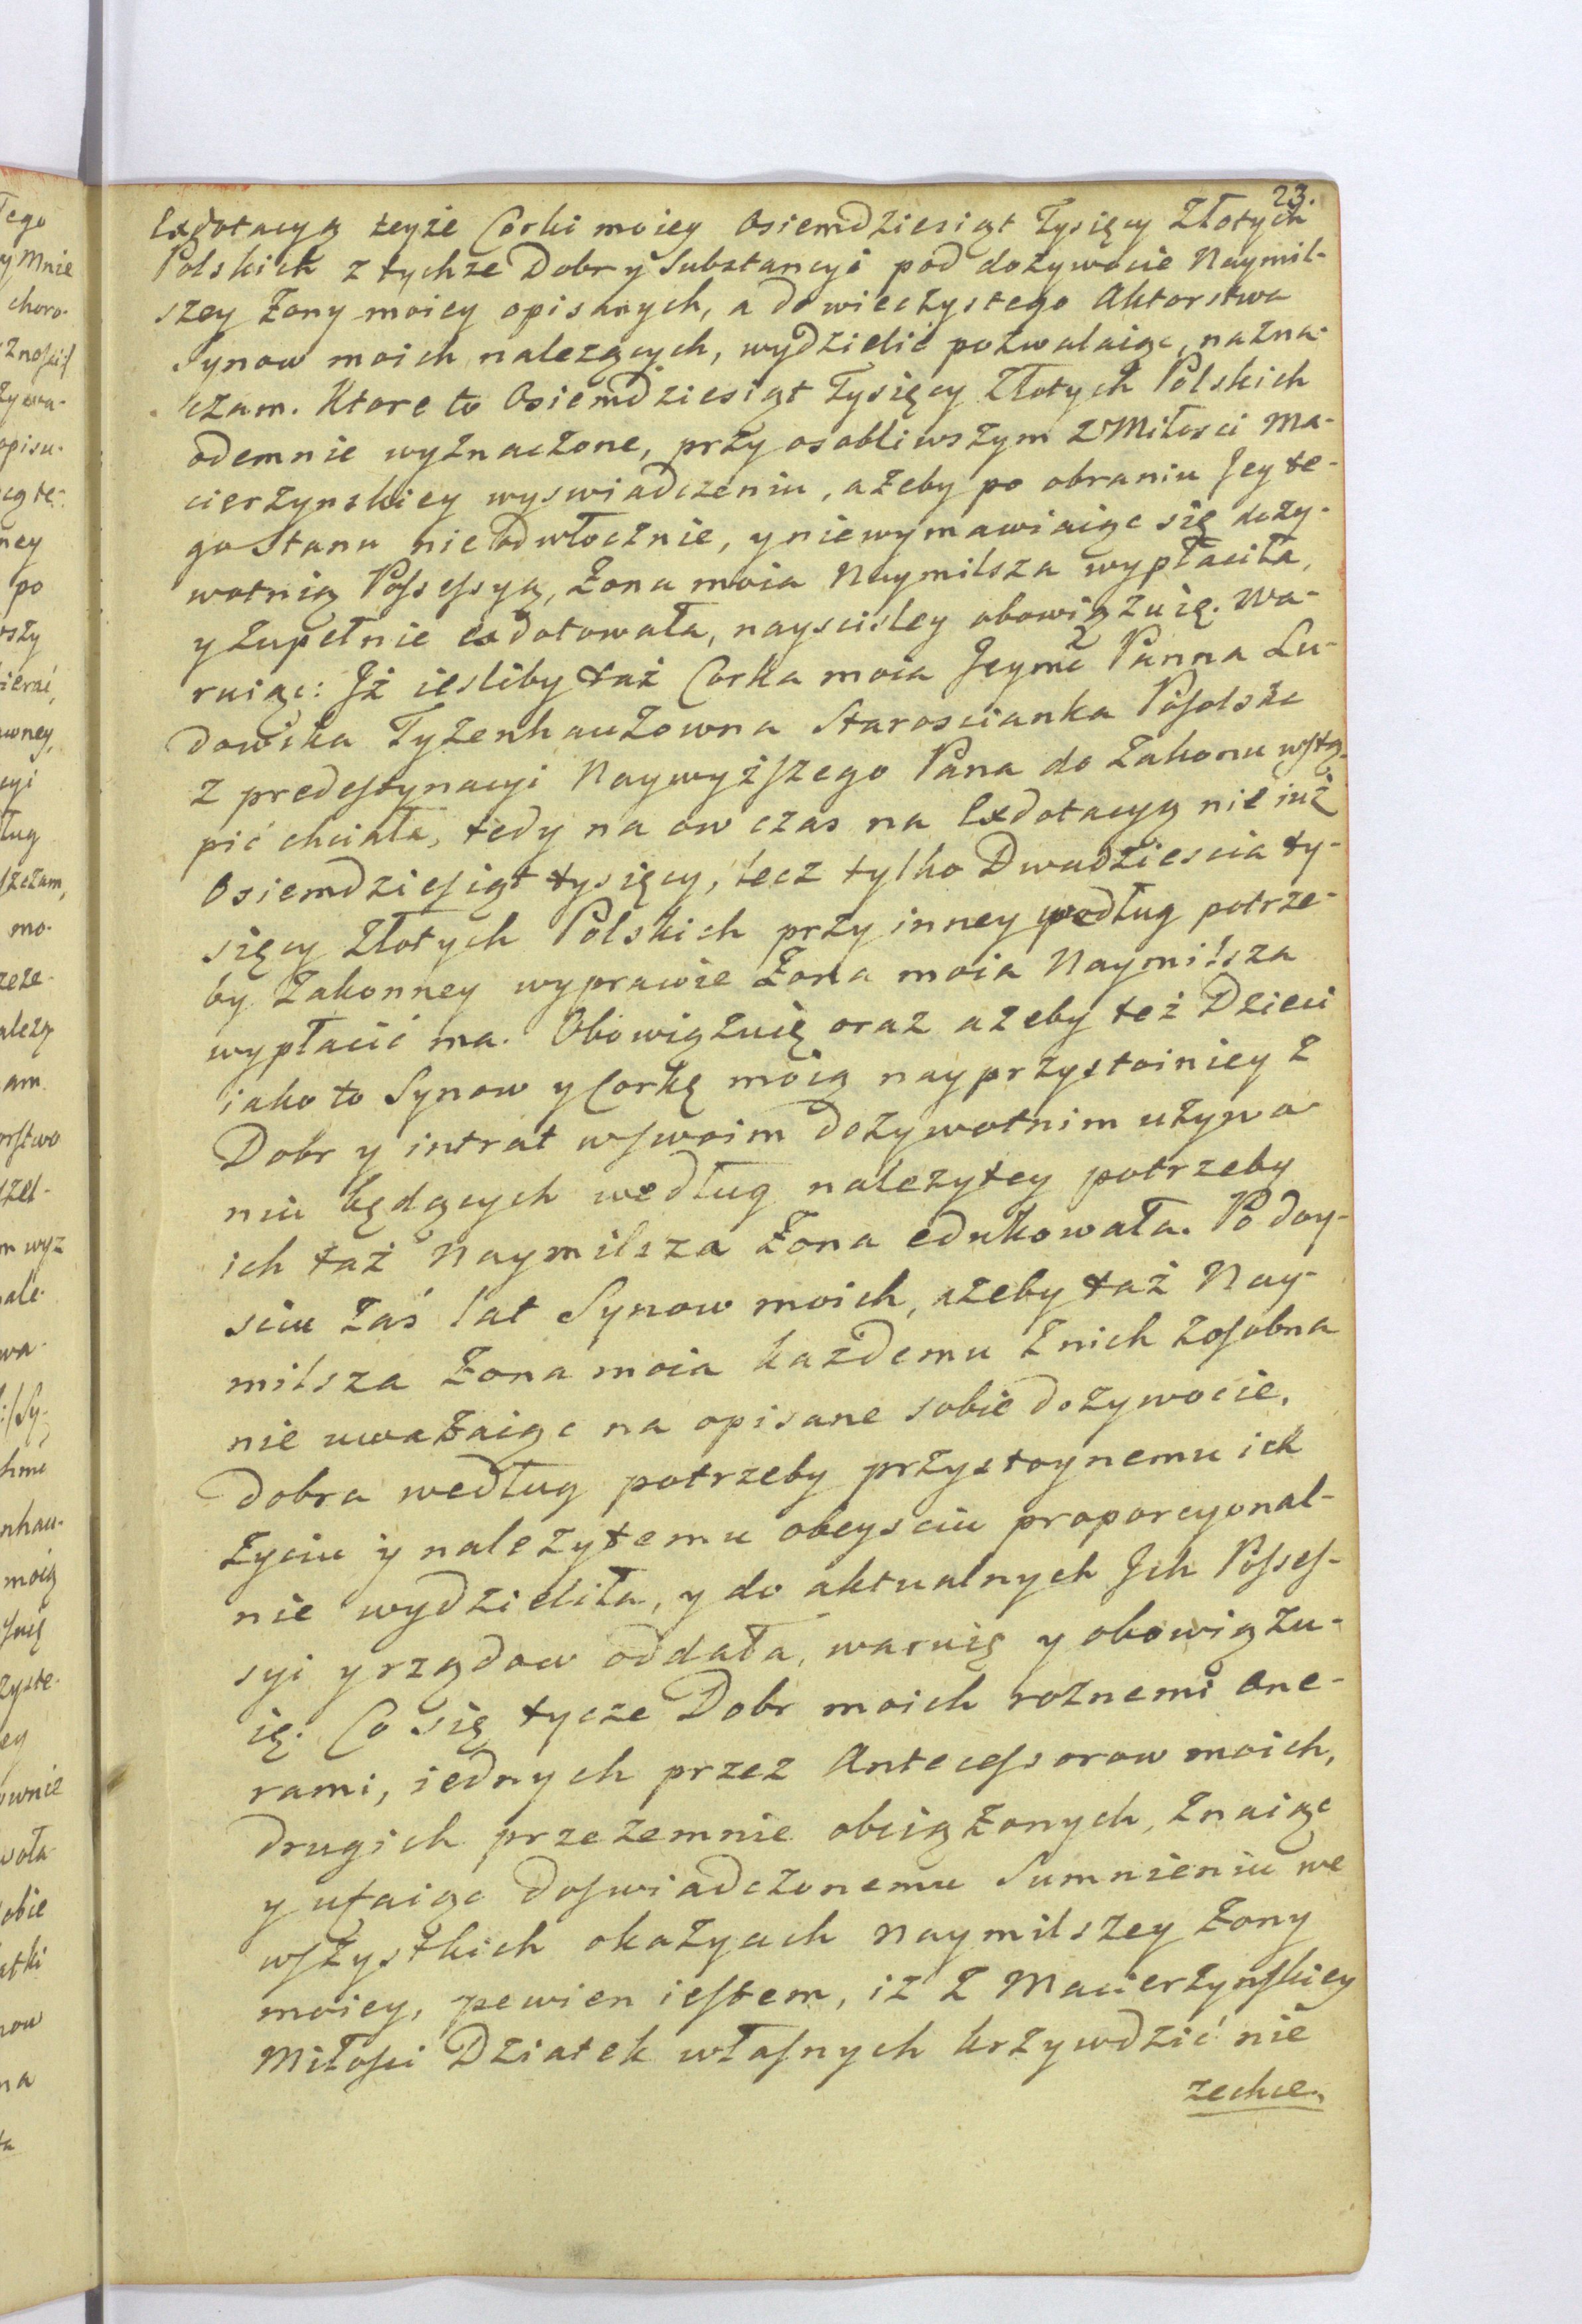 23.
Exdotacyą teyże Corki moiey Osiemdziesiąt Tysięcy Złotych
Polskich z tychże Dobr y Substancyi pod dożywocie Naymil-
szey Żony moiey opisanych, a do wieczystego Aktorstwa
Synow moich należących, wydzielić pozwalaiąc, nazna-
czam. Ktore to Osiemdziesiąt Tysięcy Złotych Polskich
odemnie wyznaczone, przy osobliwszym z Miłosci Ma-
cierzynskiey wyswiadczeniu, ażeby po obraniu Jey te-
go Stanu nieodwłocznie, y niewymawiaiąc się doży-
wotnią Possessyą, Żona moia Naymilsza wypłaciła,
y zupełnie exdotowała, nayscisley obowiązuię. Wa-
ruiąc: Jż iesliby taż Corka moia Jeymć Panna Lu-
dowika Tyzenhauzowna Starościanka Posolska
z predestynacyi Naywyższego Pana do Zakonu wstą-
pić chciała, tedy na ow czas na Exdotacyą nie iuż
Osiemdziesiąt tysięcy, lecz tylko Dwadziescia ty-
sięcy Złotych Polskich przy inney według potrze-
by Zakonney wyprawie Żona moia Naymilsza
wypłacić ma. Obowiązuię oraz ażeby też Dzieci
iako to Synow y Corkę moią nayprzystoiniey z
Dobr y intrat w swoim dożywotnim używa-
niu będących według należytey potrzeby
ich taż Naymilsza Żona edukowała. Po doy-
sciu zaś lat Synow moich, ażeby taż Nay-
milsza Żona moia każdemu z nich zosobna
nie uważaiąc na opisane sobie dożywocie,
dobra według potrzeby przystoynemu ich
życiu y należytemu obeysciu proporcyonal-
nie wydzieliła, y do aktualnych Jch Posses-
syi y rządow oddała, waruię y obowiązu-
ię. Co się tycze Dobr moich roznemi one-
rami, iednych przez Antecessorow moich,
drugich przezemnie obciążonych, znaiąc
y ufaiąc doswiadczonemu Sumnieniu we
wszystkich okazyach Naymilszey Żony
moiey, pewien iestem, iż z Macierzynskiey
Miłosci Dziatek własnych krzywdzić nie
zechce.